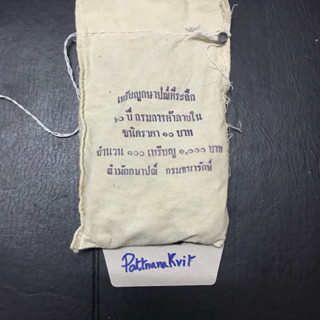 เหรียญกษาปณ์ที่ระลึก
๖๐ ปี กรมการค้าภายใน
ชนิดราคา ๑๐ บาท
จำนวน ๑๐๐ เหรียญ ๑,๐๐๐ บาท
สำนักกษาปณ์ กรมธนารักษ์
PattnanaKvit